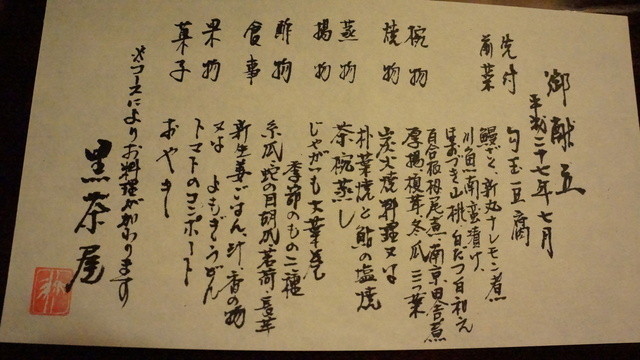 御献立
平成二十七年七月
先付 勾玉豆腐
前菜 鰻ざく、新丸十レモン煮
川魚南蛮漬け、
ほおづき山桃、白だつ百和え
百合根梅尾煮、南京田舎煮
椀物 厚揚複茸冬瓜三つ葉
焼物 炭火焼料理又は
朴葉焼と鮎の塩焼
蒸物 茶碗蒸し
揚物 じゃがいも大葉
季節のもの二種
酢物 糸瓜、蛇の目胡瓜、茗荷、
食事 新生姜ごはん、汁、香の物
又は よもぎうどん
果物 トマトのコンポート
菓子 おやき
※コースによりお料理が加わります
黒茶屋